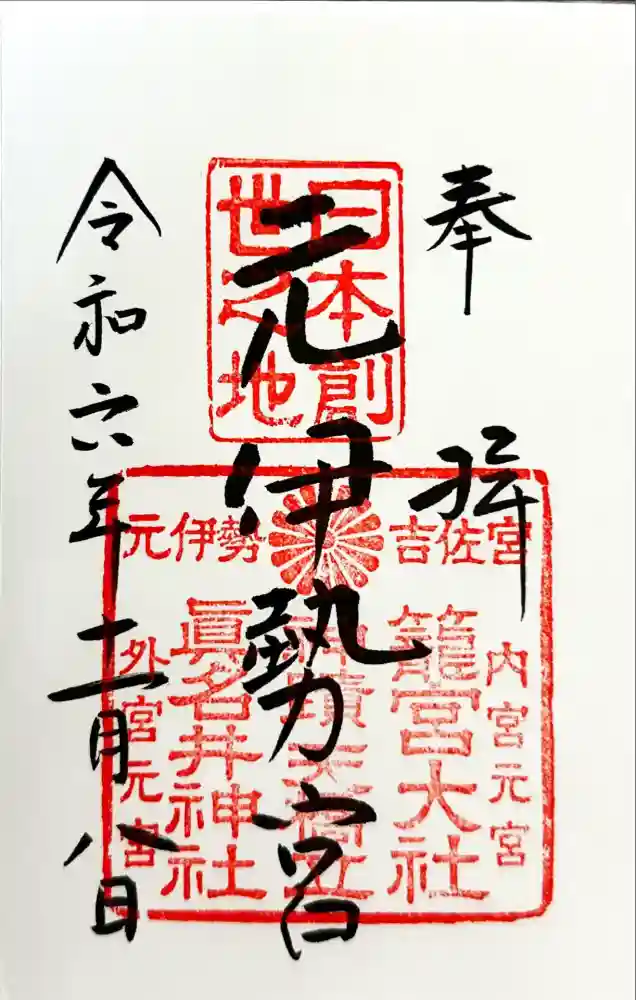 奉拝
日本創
世之地
元伊勢宮
吉佐宮
元伊勢
内宮元宮
籠宮大社
神蹟天橋立
眞名井神社
外宮元宮
令和六年十一月八日